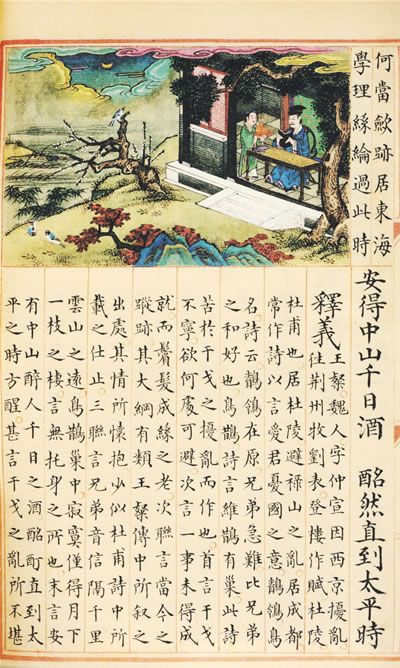 何當歛跡居東海
學理絲綸過此時
安得中山千日酒 酩然直到太平時
釋義
王粲魏人字仲宣因西京擾亂
往荆州牧劉表登樓作賦杜陵
杜甫也居杜陵避祿山之亂居成都
常作詩以言愛君憂國之意鶺鴒鳥
名詩云鶺鴒在原兄弟急難比兄弟
之和好也烏鵲詩言維鵲有巢此詩
苦於干戈之擾亂而作也首言干戈
不寧欲何處可避次言一事未得成
就而鬢髮成絲之老次聯言當今之
蹤跡其大綱有類王粲傳中所叙之
出處其情所懷抱少似杜甫詩中所
載之仕止三聯言兄弟音信隔千里
雲山之遠烏鵲巢中寂寞僅得月下
一枝之棲言無托身之所也末言安
有中山醉人千日之酒酩酊直到太
平之時方醒甚言干戈之亂所不堪